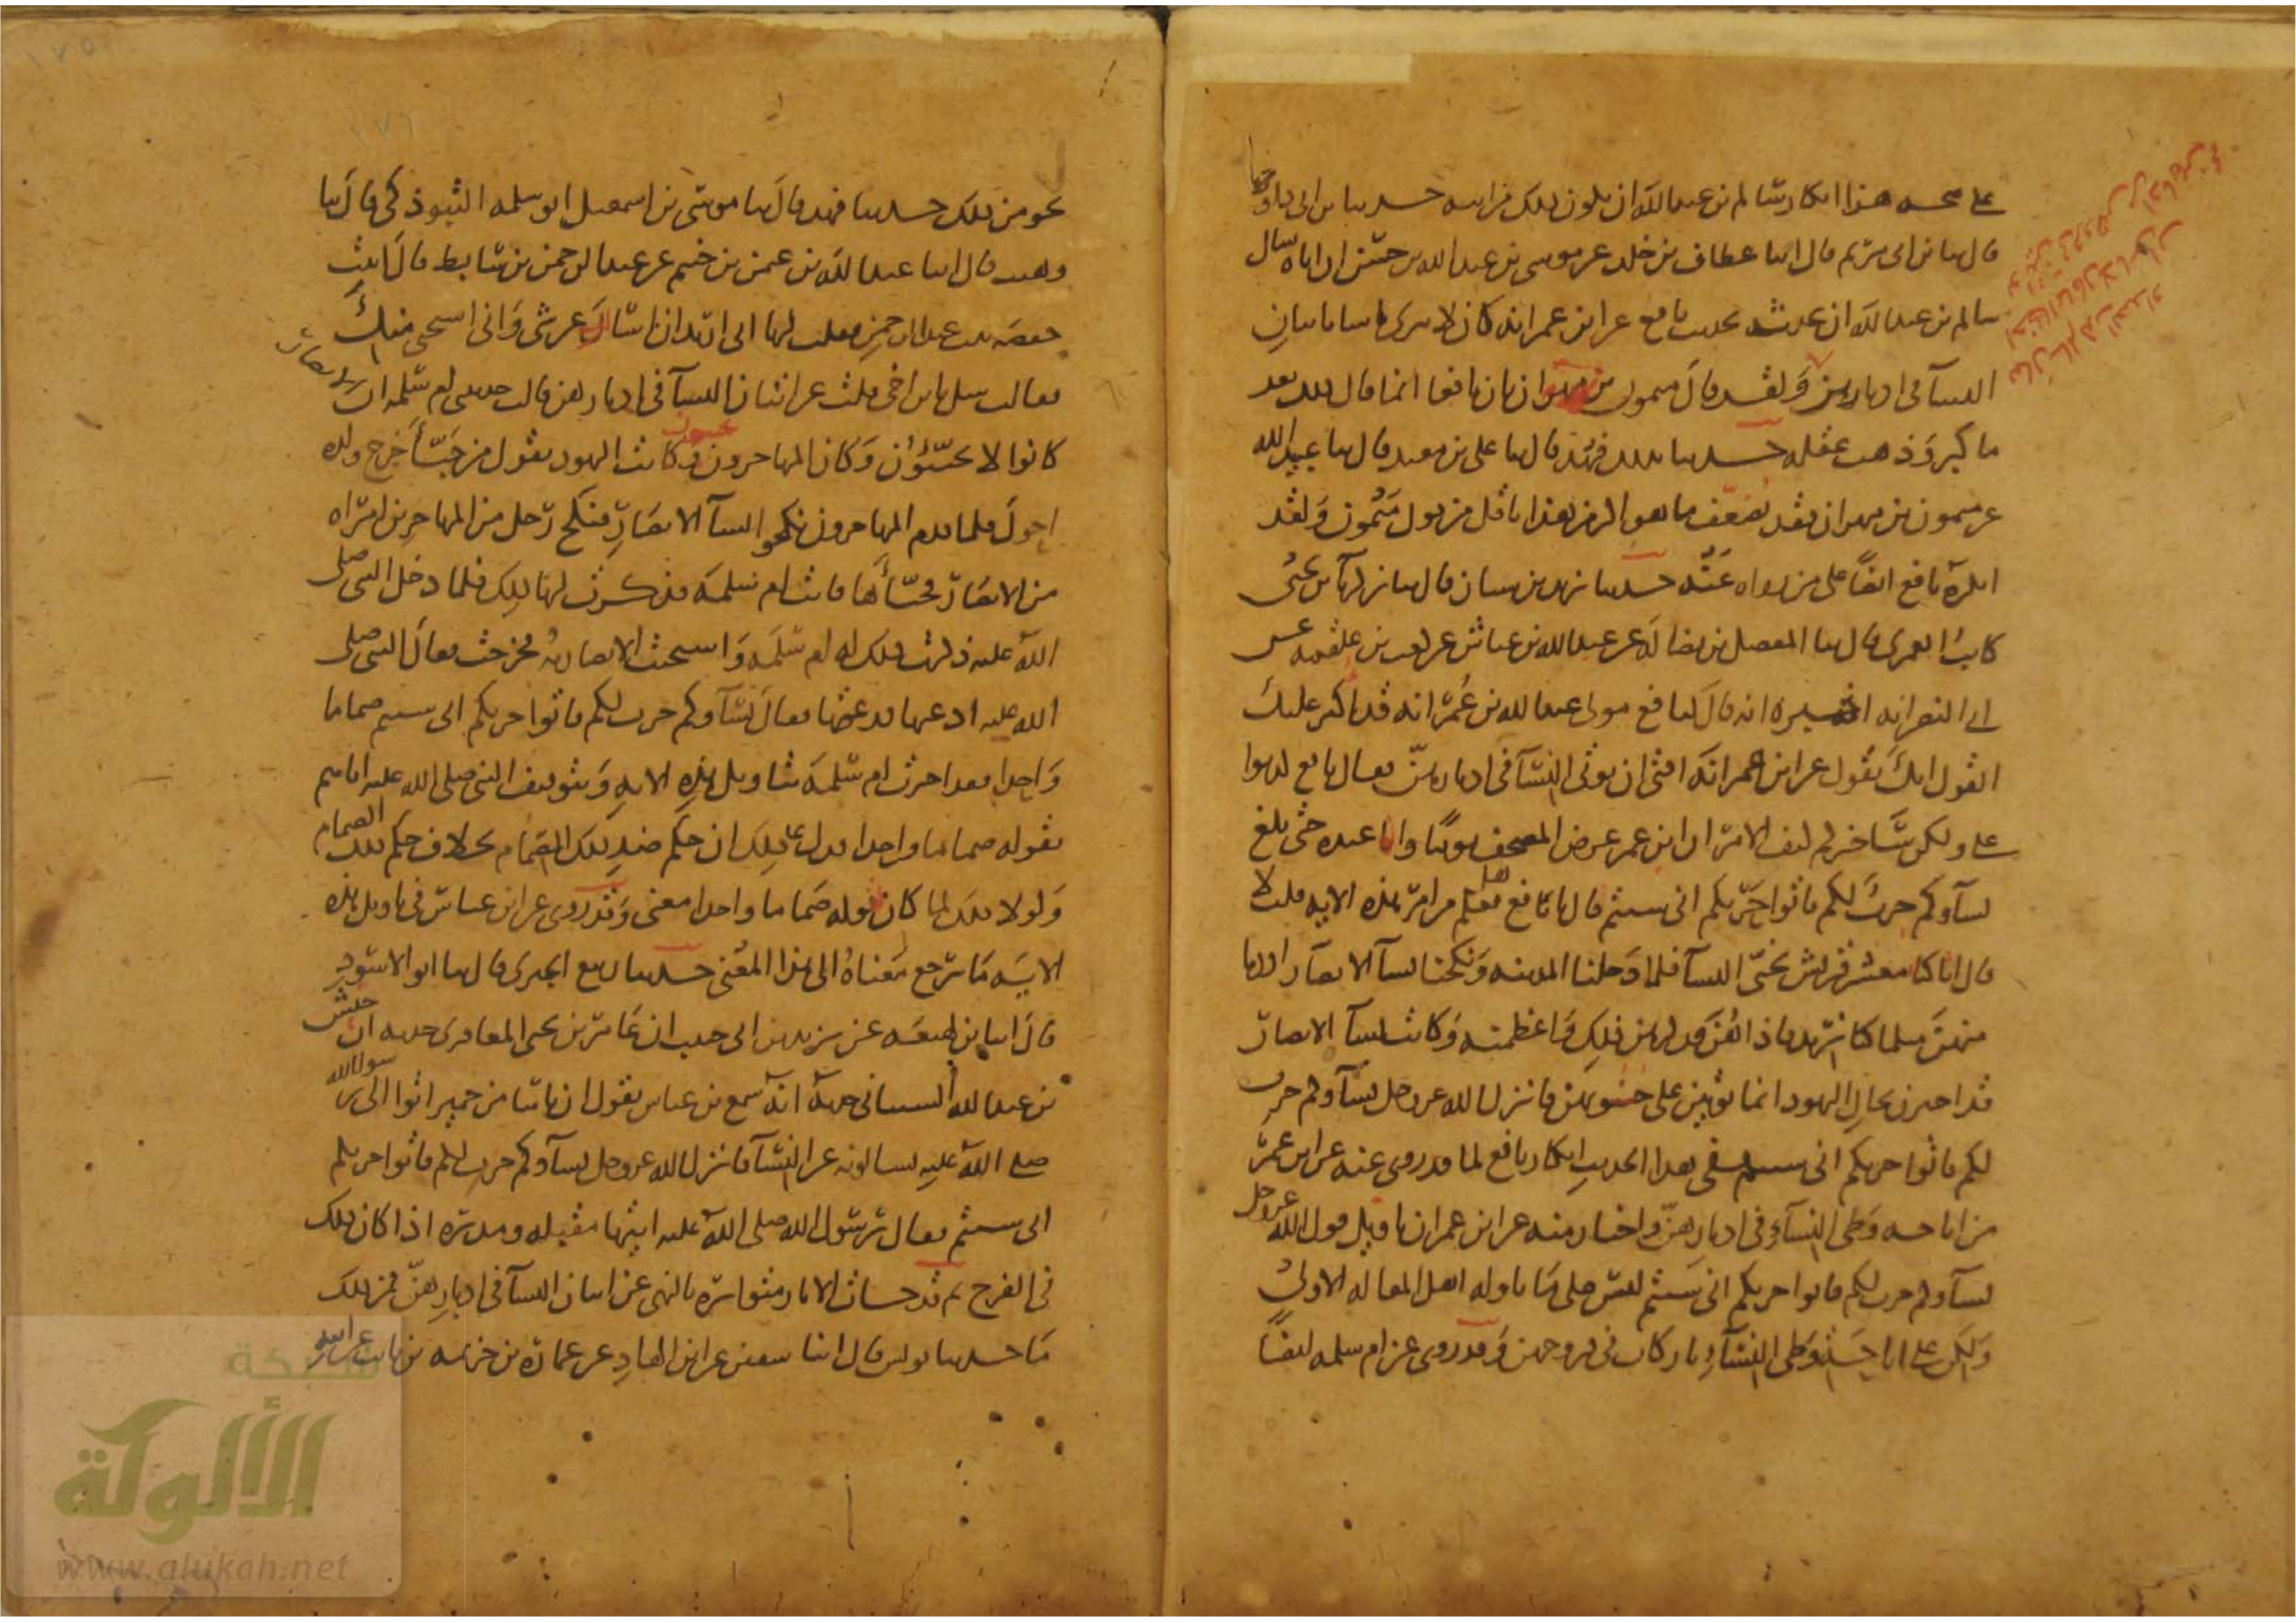 على صحة هذا انكار سالم بن عبد الله ان يكون ذلك من ابيه حدثنا بن ابى داود
قال ثنا بن ابى مريم قال انا عطاف بن خلد عن موسى بن عبد الله بن حسن ان اباه سال
سالم بن عبد الله ان يحدثه بحديث نافع عن ابن عمر انه كان لا يرى باسا باتيان
النسآ فى ادبارهن ولقد قال ميمون بن مهران ان نافعا انما قال ذلك بعد
ما كبر وذهب عقله حدثنا بذلك فهد قال ثنا على بن معبد قال ثنا عبيد الله
عن ميمون بن مهران فقد يضعف ما هو اكثر من هذا باقل من قول ميمون ولقد
انكره نافع ايضا على من رواه عنه حدثنا يزيد بن سنان قال ثنا زكريا بن يحيى
كاتب العمرى قال ثنا المفضل بن فضالة عن عبد الله بن عياش عن كعب بن علقمه عن
ابى النضر انه اخبره انه قال لنافع مولى عبد الله بن عمر انه قد اكثر عليك
القول انك تقول عن ابن عمر انه افتى ان يوتى النسآ فى ادبارهن فقال نافع كذبوا
على ولكن ساخبركم كيف الامر ان ابن عمر عرض المصحف يوما وانا عنده حتى بلغ
نسآوكم حرث لكم فاتوا حرثكم انى شيتم قال يا نافع هل تعلم من امر هذه الايه قلت لا
قال انا كنا معشر قريش نجبى النسآ فلما دخلنا المدينه ونكحنا نسآ الانصار اردنا
منهن مثل ما كنا نريد فاذا هن قد كرهن ذلك واعظمنه وكانت نسآ الانصار
قد اخذن بحال اليهود انما يوتين على جنوبهن فانزل الله عز وجل نسآوكم حرث
لكم فاتوا حرثكم انى شيتم ففى هذا الحديث انكار نافع لما قد روى عنه عن ابن عمر
من اباحه وطى النسآ فى ادبارهن واخبار منه عن ابن عمر ان تاويل قول الله عز وجل
نسآوكم حرث لكم فاتوا حرثكم انى شيتم ليس على ما تاوله اهل المقاله الاولى
ولكن على اباحة وطى النسآ باركات فى فروجهن وقد روى عن ام سلمه ايضا
نحو من ذلك حدثنا فهد قال ثنا موسى بن اسمعيل ابو سلمه التبوذكى قال ثنا
وهيب قال انا عبد الله بن عثمن بن خثيم عن عبد الرحمن بن سابط قال اتيت
حفصه بنت عبد الرحمن فقلت لها انى اريد ان اسالك عن شى وانى استحى منك
فقالت سل يا بن اخى قلت عن اتيان النسآ فى ادبارهن قالت حدثتنى ام سلمه ان الانصار
كانوا لا يجبون وكان المهاجرون يجبون وكانت اليهود تقول من جبا خرج ولده
احول فلما قدم المهاجرون نكحوا نسآ الانصار فنكح رجل من المهاجرين امراه
من الانصار فجباها فاتت ام سلمه فذكرت لها ذلك فلما دخل النبى صلى
الله عليه ذكرت ذلك له ام سلمه واستحت الانصاريه فخرجت فقال النبى صلى
الله عليه ادعيها فدعتها فقال نسآوكم حرث لكم فاتوا حرثكم انى شيتم صماما
واحدا فقد اخبرت ام سلمه بتاويل هذه الايه وبتوقيف النبى صلى الله عليه اياهم
بقوله صماما واحدا فدل على ذلك ان حكم ضد ذلك الصمام بخلاف حكم ذلك الصمام
ولولا ذلك لما كان لقوله صماما واحدا معنى وقد روى عن ابن عباس فى تاويل هذه
الايه ما يرجع معناه الى هذا المعنى حدثنا ربيع الجيزى قال ثنا ابو الاسود
قال انا بن لهيعه عن يزيد بن ابى حبيب ان عامر بن يحيى المعافرى حدثه ان حنش
بن عبد الله السبانى حدثه انه سمع بن عباس يقول ان ناسا من حمير اتوا الى رسول الله
صلى الله عليه يسالونه عن النسآ فانزل الله عز وجل نسآوكم حرث لكم فاتوا حرثكم
انى شيتم فقال رسول الله صلى الله عليه ايتها مقبله ومدبره اذا كان ذلك
فى الفرج ثم قد جات الاثار متواتره بالنهى عن اتيان النسآ فى ادبارهن فمن ذلك
ما حدثنا يونس قال انا سفين عن ابن الهاد عن عماره بن خزيمه بن ثابت عن ابيه
شبكة
الألوكة
www.alukah.net